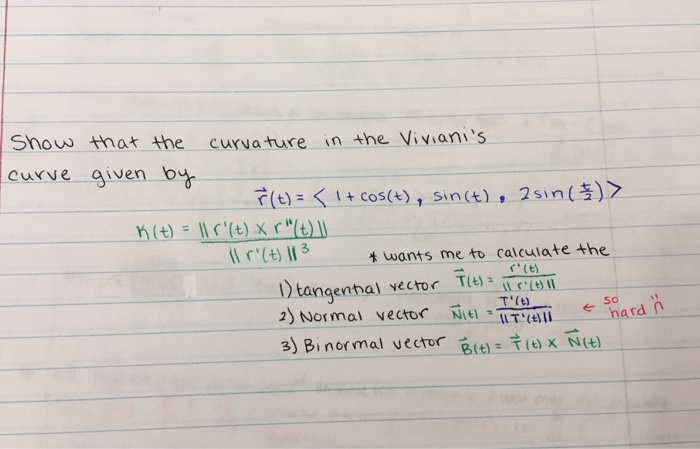 Show that the curvature in the Viviani's
curve given by
r⃗(t) = < 1 + cos(t), sin(t), 2 sin(t/2) >
K(t) = ||r'(t) x r"(t)|| / ||r'(t)||³
* wants me to calculate the
1) tangential vector T⃗(t) = r'(t) / ||r'(t)||
2) Normal vector N⃗(t) = T'(t) / ||T'(t)|| ← so hard
3) Binormal vector B⃗(t) = T⃗(t) x N⃗(t)